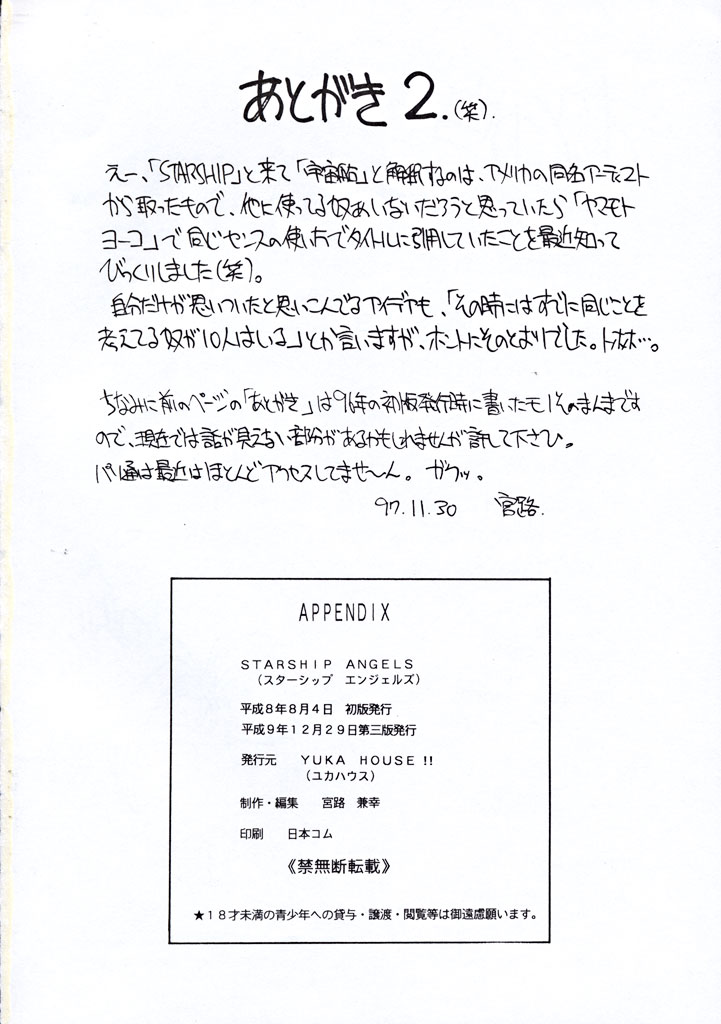 あとがき 2.(笑).
えー、「STARSHIP」と来て「宇宙船」と解釈するのは、アメリカの同名アーティスト
から取ったもので、他に使ってる奴あいないだろうと思っていたら「ヤマモト
ヨーコ」で同じセンスの使い方でタイトルに引用していたことを最近知って
びっくりしました(笑)。
自分だけが思いついたと思いこんでるアイデアも、「その時にはすでに同じことを
考えてる奴が10人はいる」とか言いますが、ホントにそのとおりでした。トホホ…。
ちなみに前のページの「あとがき」は96年の初版発行時に書いたモノそのまんまです
ので、現在では話が見えない部分があるかもしれませんが許して下さひ。
パソ通は最近はほとんどアクセスしてませ〜ん。ガクッ。
97.11.30 宮路.
APPENDIX
STARSHIP ANGELS
(スターシップ エンジェルズ)
平成8年8月4日 初版発行
平成9年12月29日第三版発行
発行元 YUKA HOUSE!!
(ユカハウス)
制作・編集 宮路 兼幸
印刷 日本コム
《禁無断転載》
★18才未満の青少年への貸与・譲渡・閲覧等は御遠慮願います。